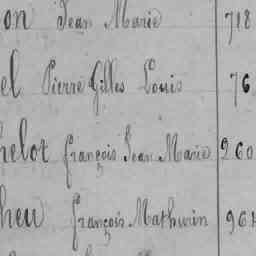 on Jean Marie 718
el Pierre Gilles Louis 76
helot françois Jean Marie 260
heu françois Mathurin 961